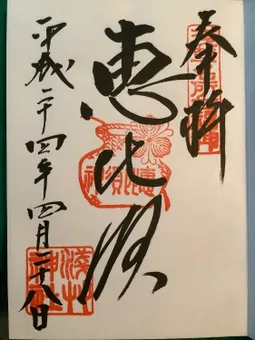 奉拝
恵比須
平成二十四年四月二十八日
浅草神社